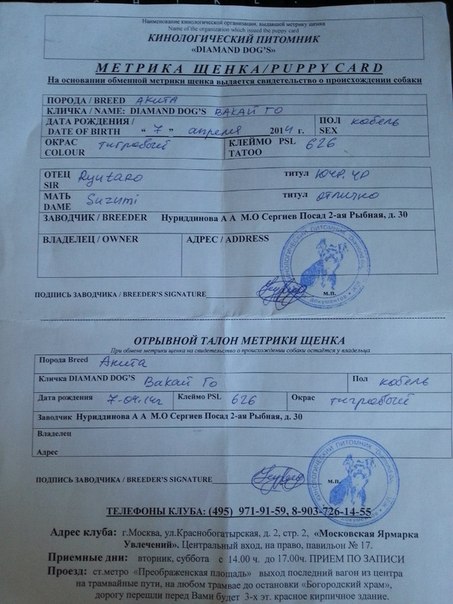 Наименование кинологической организации, выдавшей метрику щенка
Name of the organization which issued the puppy card
КИНОЛОГИЧЕСКИЙ ПИТОМНИК
«DIAMAND DOG'S»
МЕТРИКА ЩЕНКА/PUPPY CARD
На основании обменной метрики щенка выдается свидетельство о происхождении собаки
ПОРОДА / BREED Акита
КЛИЧКА / NAME: DIAMAND DOG'S ВАКАЙ ГО
ДАТА РОЖДЕНИЯ / DATE OF BIRTH "7" апреля 2014 г ПОЛ SEX кобель
ОКРАС COLOUR тигровый КЛЕЙМО PSL TATOO 626
ОТЕЦ SIR Ryutaro титул Юч.р. чр
МАТЬ DAME Suzumi титул отлично
ЗАВОДЧИК / BREEDER Нуриддинова А А М.О Сергиев Посад 2-ая Рыбная, д. 30
ВЛАДЕЛЕЦ / OWNER АДРЕС / ADDRESS
ПОДПИСЬ ЗАВОДЧИКА / BREEDER'S SIGNATURE М.П.
ОТРЫВНОЙ ТАЛОН МЕТРИКИ ЩЕНКА
При обмене метрики щенка на свидетельство о происхождении собаки остаётся у владельца
Порода Breed Акита
Кличка DIAMAND DOG'S Вакай Го Пол кобель
Дата рождения 7-04.14г Клеймо PSL 626 Окрас тигровый
Заводчик Нуриддинова А А М.О Сергиев Посад 2-ая Рыбная, д. 30
Владелец
Адрес
ПОДПИСЬ ЗАВОДЧИКА / BREEDER'S SIGNATURE М.П.
ТЕЛЕФОНЫ КЛУБА: (495) 971-91-59, 8-903-726-14-55
Адрес клуба: г.Москва, ул.Краснобогатырская, д. 2, стр. 2, «Московская Ярмарка
Увлечений». Центральный вход, на право, павильон № 17.
Приемные дни: вторник, суббота с 14.00 ч. до 17.00ч. ПРИЕМ ПО ЗАПИСИ
Проезд: ст.метро «Преображенская площадь» выход последний вагон из центра
на трамвайные пути, на любом трамвае до остановки «Богородский храм»,
дорогу перешли перед Вами будет 3-х эт. красное кирпичное здание.